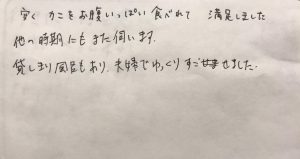 安く カニをお腹いっぱい食べれて 満足しました
他の時期にもまた伺います.
貸しきり風呂もあり、夫婦でゆっくりすごせました.